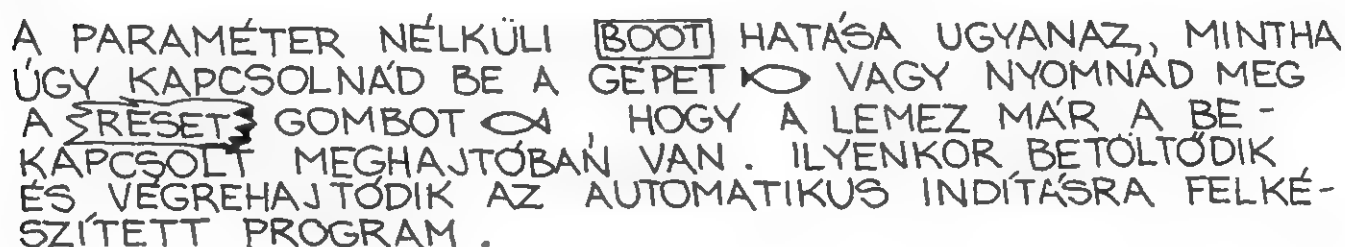 A PARAMÉTER NÉLKÜLI BOOT HATÁSA UGYANAZ, MINTHA
ÚGY KAPCSOLNÁD BE A GÉPET VAGY NYOMNÁD MEG
A RESET GOMBOT , HOGY A LEMEZ MÁR A BE-
KAPCSOLT MEGHAJTÓBAN VAN. ILYENKOR BETÖLTŐDIK
ÉS VÉGREHAJTÓDIK AZ AUTOMATIKUS INDÍTÁSRA FELKÉ-
SZÍTETT PROGRAM.